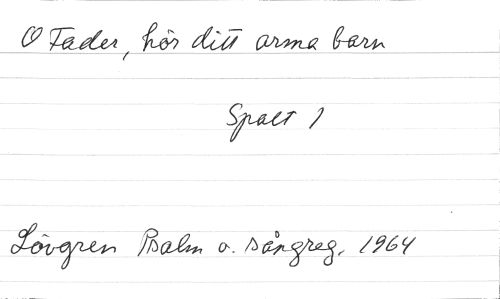 O Fader, hör ditt arma barn
Spalt 1
Lövgren Psalm o. sångreg. 1964